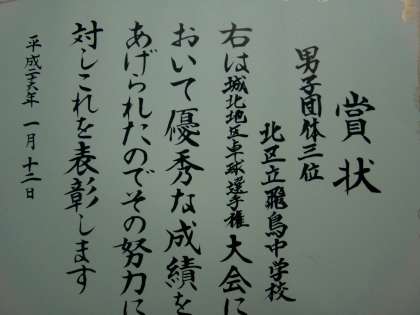 賞状
男子団体三位
北区立飛鳥中学校
右は城北地区卓球選手権大会に
おいて優秀な成績を
あげられたのでその努力に
対しこれを表彰します
平成二十六年 一月 十二日